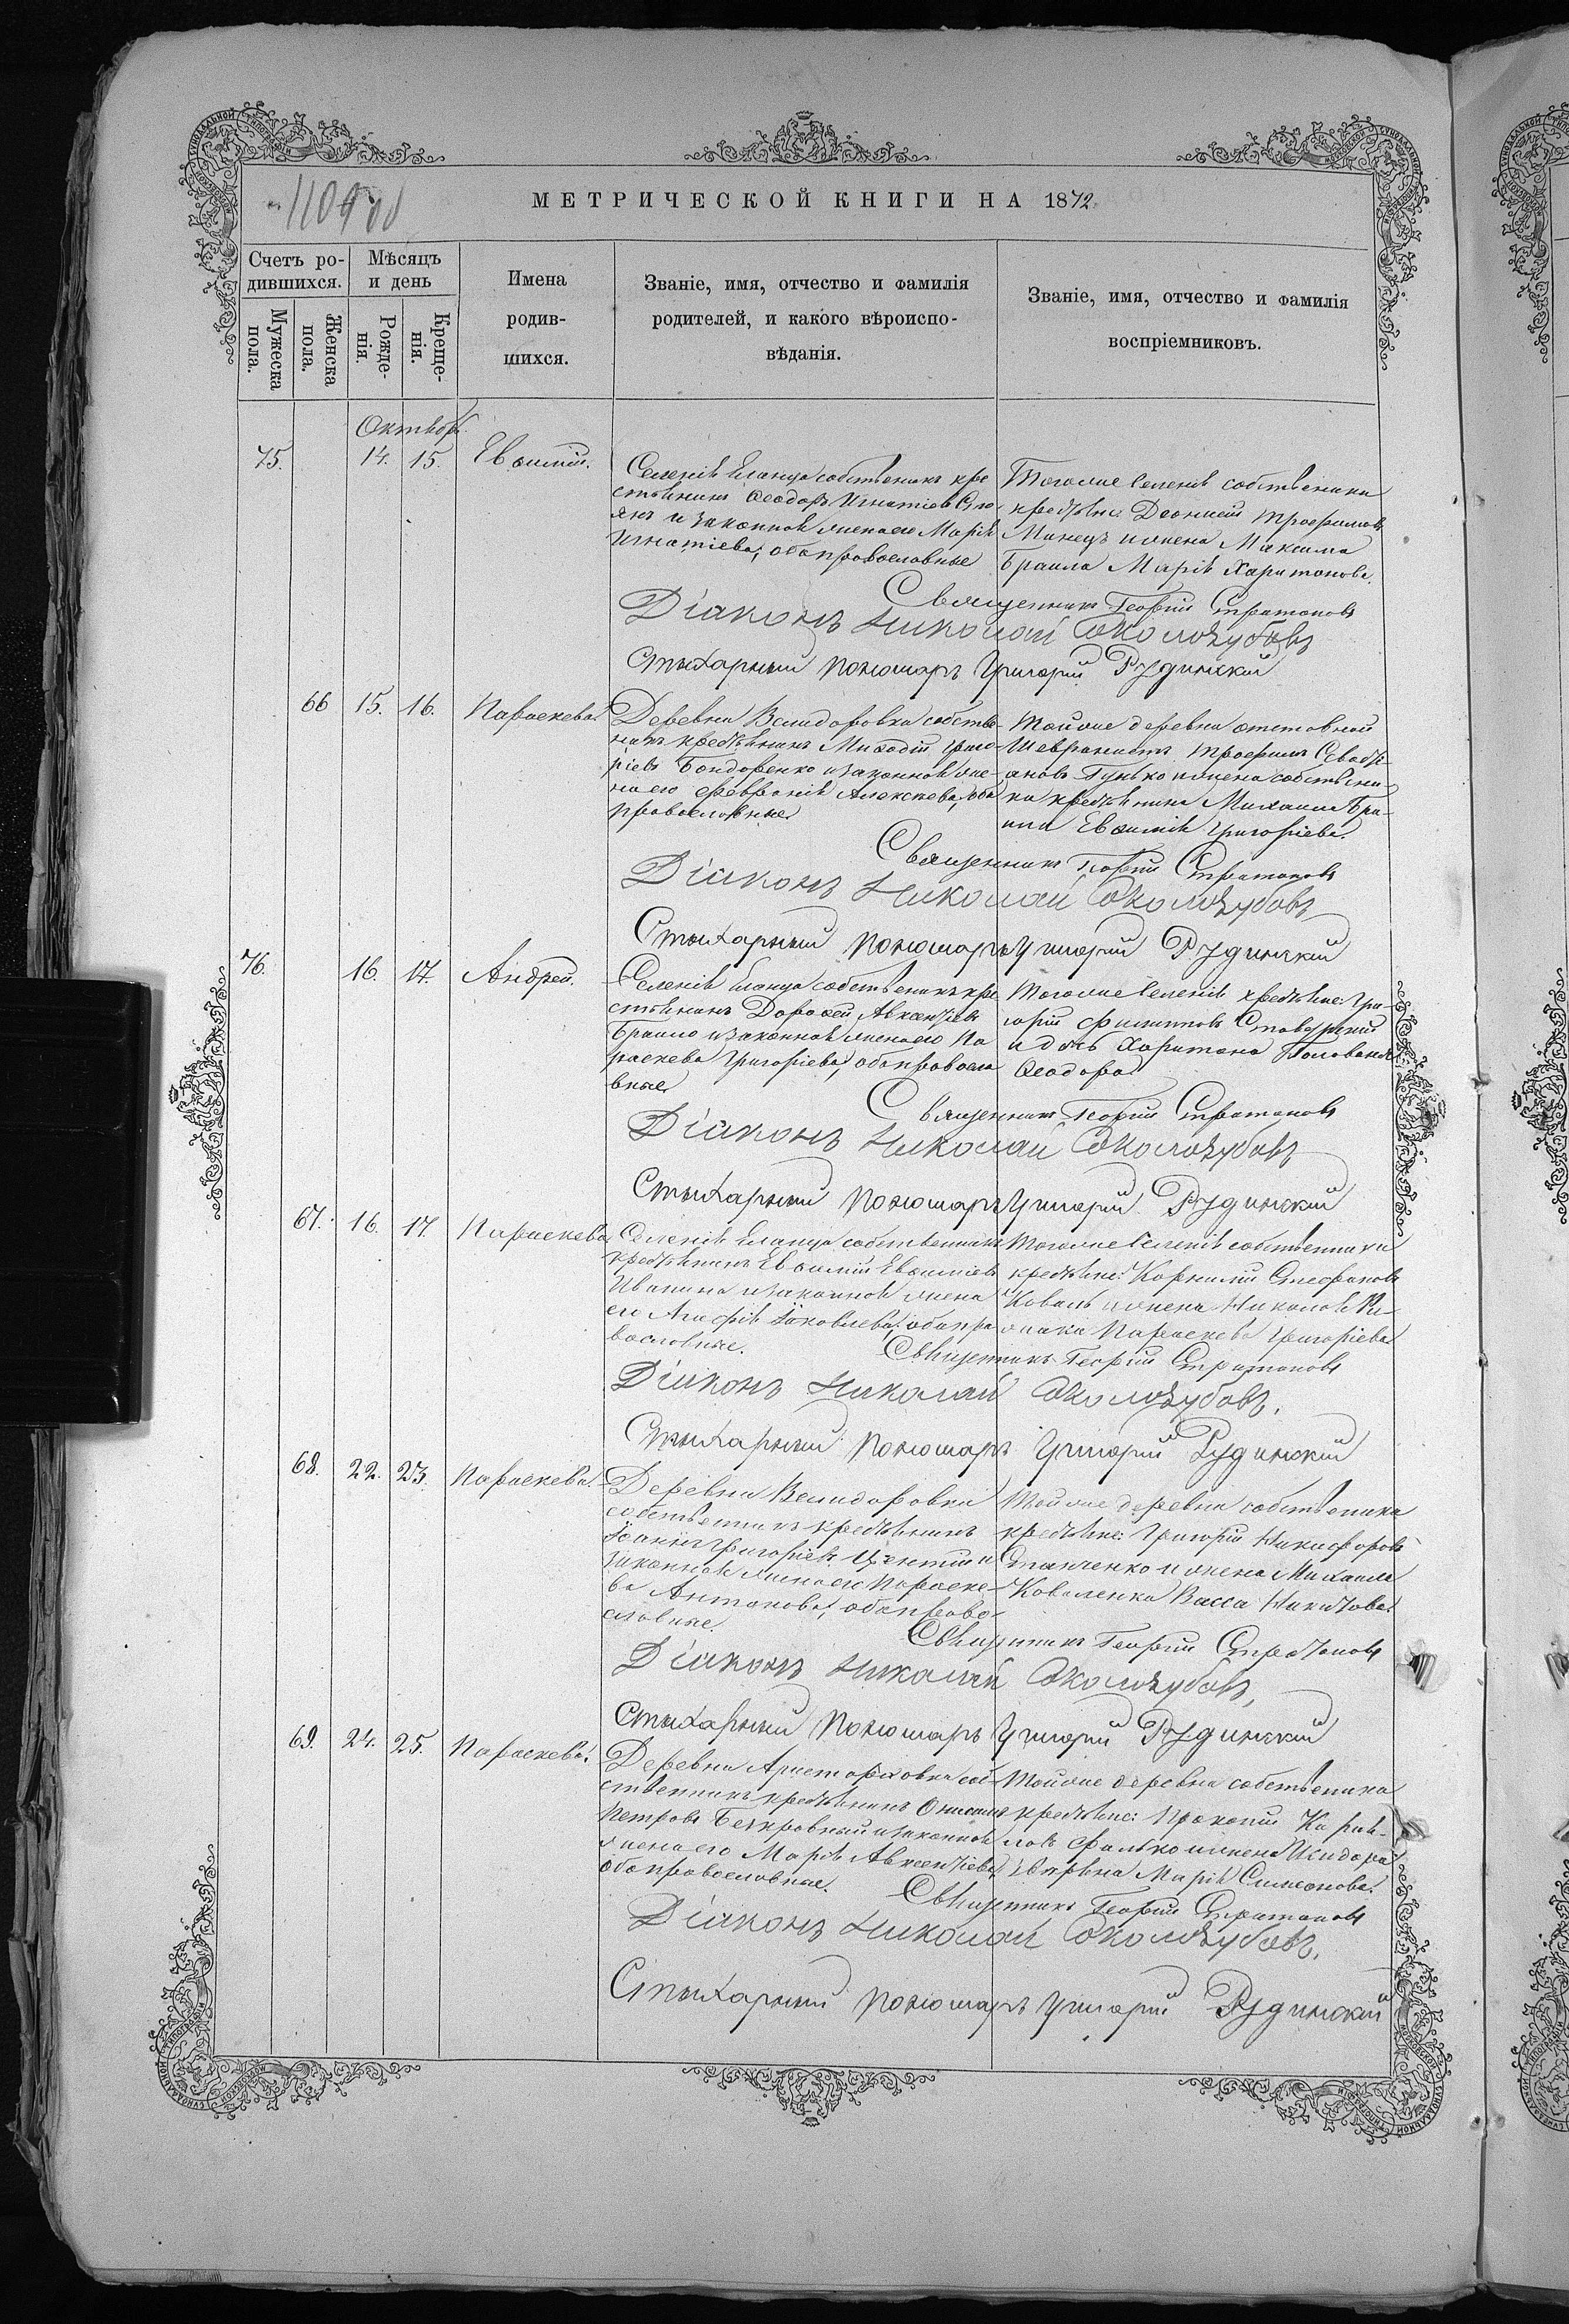 МЕТРИЧЕСКОЙ КНИГИ НА 1872
Счетъ ро-
дившихся.
Мѣсяцъ
и день
Мужеска
пола.
Женска
пола.
Рожде-
нія.
Креще-
нія.
Имена
родив-
шихся.
Званіе, имя, отчество и фамилія
родителей, и какого вѣроиспо-
вѣданія.
Званіе, имя, отчество и фамилія
воспріемниковъ.
Октябрь
75. 14. 15. Евѳимій.
Селенія Еланца собственикъ кре
стьянинъ Ѳеодоръ Игнатіевъ
и законная жена его Марія
Игнатіева, оба православные
Тогоже селенія собственики
крестьяне: Трофимовъ
и жена Максима
Браила Марія Харитонова.
Священникъ Георгій Стратоновъ
Діаконъ Николай
Стихарный пономаръ Григорій Рудинскій
66 15. 16. Параскева.
Деревни собстве-
никъ крестьянинъ Меѳодій Григо-
ріевъ Бондаренко и законная же-
на его Феврония Алексѣева, оба
православные
Тойже деревни отставной
Трофимъ Севасті-
ановъ Гунько и жена собствени-
ка крестьянина Михаила Бра-
ила Евѳимія Григоріева.
Священникъ Георгій Стратоновъ
Діаконъ Николай
Стихарный пономаръ Григорій Рудинскій
76. 16. 17. Андрей.
Селенія Еланца собственикъ кре
стьянинъ Дороѳей Авксентіевъ
Браило и законная жена его Па
раскева Григоріева, оба правосла
вные
Тогоже селенія крестьяне: Гри-
горій Филиповъ
и дочь Харитона Голованя
Ѳеодора
Священникъ Георгій Стратоновъ
Діаконъ Николай
Стихарный пономаръ Григорій Рудинскій
67. 16. 17. Параскева
Селенія Еланца собственникъ
крестьянинъ Евѳимій Евѳиміевъ
и законная жена
его Агафія Іаковлева, оба пра
вославные.
Тогоже селенія собственники
крестьяне: Корнилій Стефановъ
Коваль и жена Николая
Параскева Григоріева
Священникъ Георгій Стратоновъ
Діаконъ Николай
Стихарный пономаръ Григорій Рудинскій
68. 22. 23. Параскева.
Деревни
собственникъ крестьянинъ
Іоаннъ Григоріевъ и
законная жена его Параске-
ва Антонова, оба право-
славные.
Тойже деревни собственика
крестьяне: Григорій Никифоровъ
и жена Михаила
Коваленка Васса Никитова.
Священникъ Георгій Стратоновъ
Діаконъ Николай
Стихарный пономаръ Григорій Рудинскій
69. 24. 25. Параскева.
Деревни Аристарховки соб-
ственникъ крестьянинъ Онисимъ
Петровъ Безкровный и законная
жена его Марія Авксентіева,
оба православные.
Тойже деревни собственика
крестьяне: Прокопій Кирил-
ловъ и жена Исидора
Марія Симеонова.
Священникъ Георгій Стратоновъ
Діаконъ Николай
Стихарный пономаръ Григорій Рудинскій